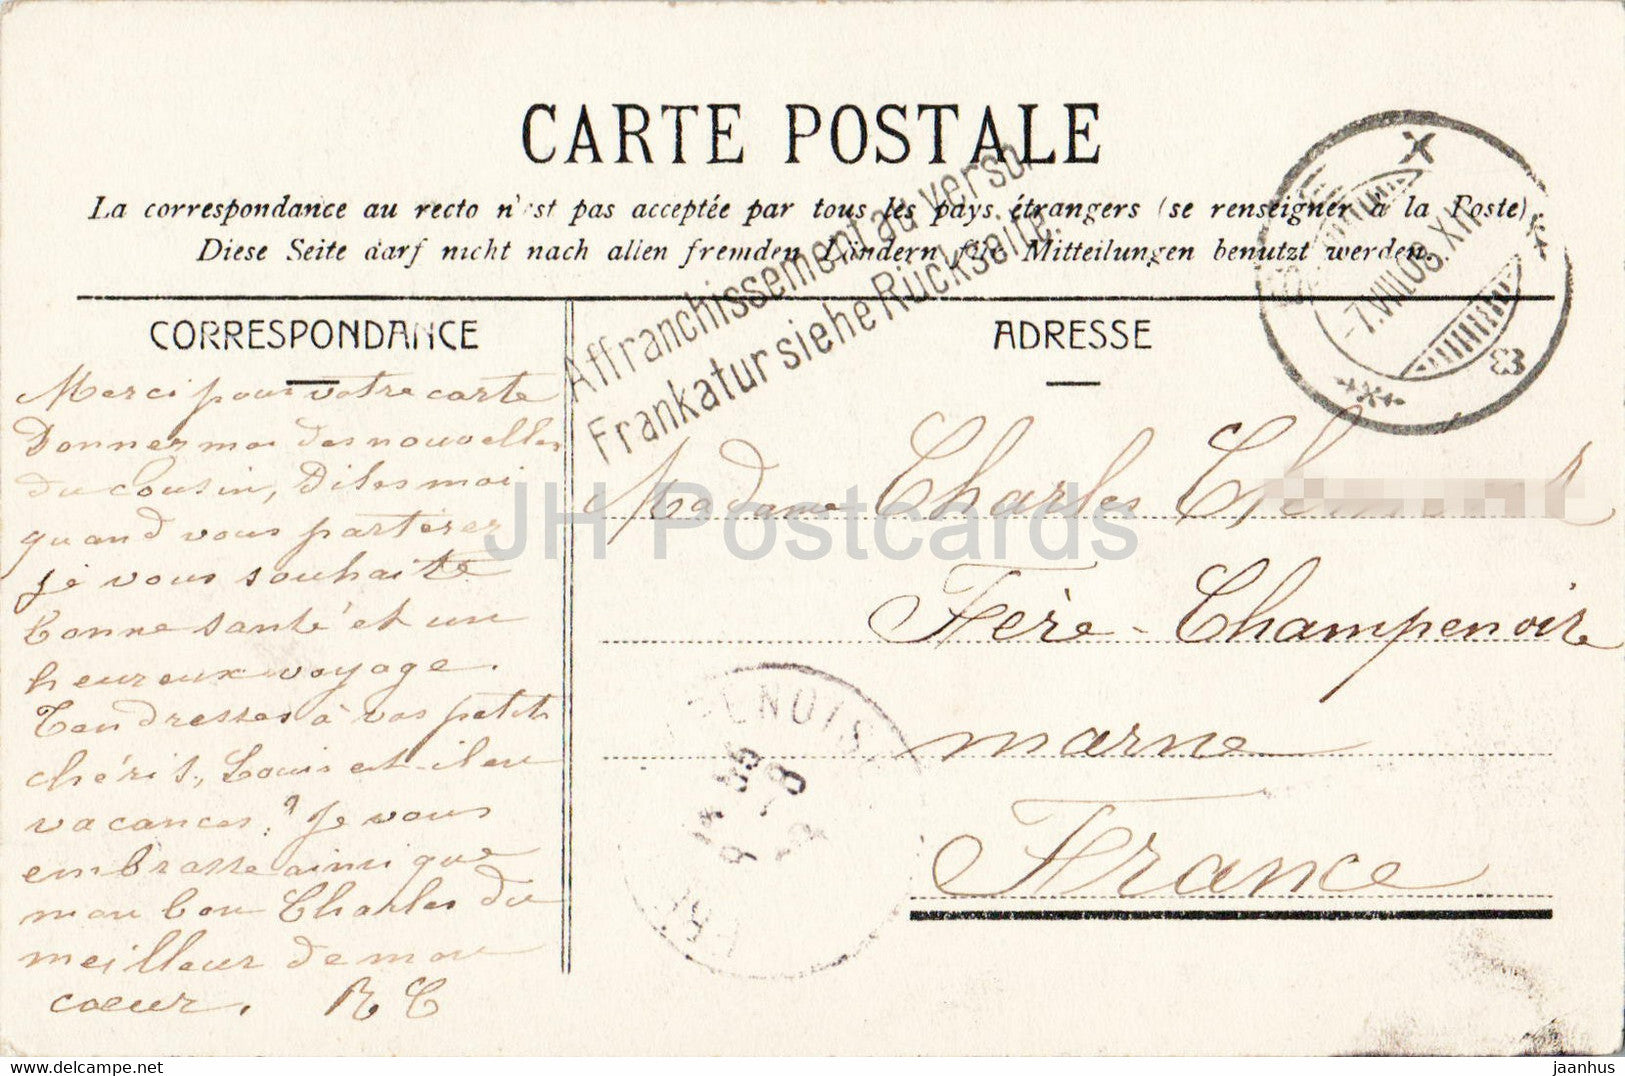 CARTE POSTALE
La correspondance au recto n'est pas acceptée par tous les pays étrangers (se renseigner à la Poste)
Diese Seite darf nicht nach allen fremden Ländern für Mitteilungen benutzt werden.
Affranchissement au verso.
Frankatur siehe Rückseite.
X
-7.VIII.08.XII
CORRESPONDANCE
Merci pour votre carte
Donner moi des nouvelles
du cousin, Dites moi
quand vous partirer
je vous souhaite
bonne santé et un
heureux voyage.
Tendresses à vos petits
chéris, Louis est-il en
vacances? Je vous
embrasse ainsi que
mon bon Charles du
meilleur de mon
coeur. R C
ADRESSE
Madame Charles
Fère-Champenoise
marne
France
ENOIS
JH Postcards
delcampe.net
jaanhus